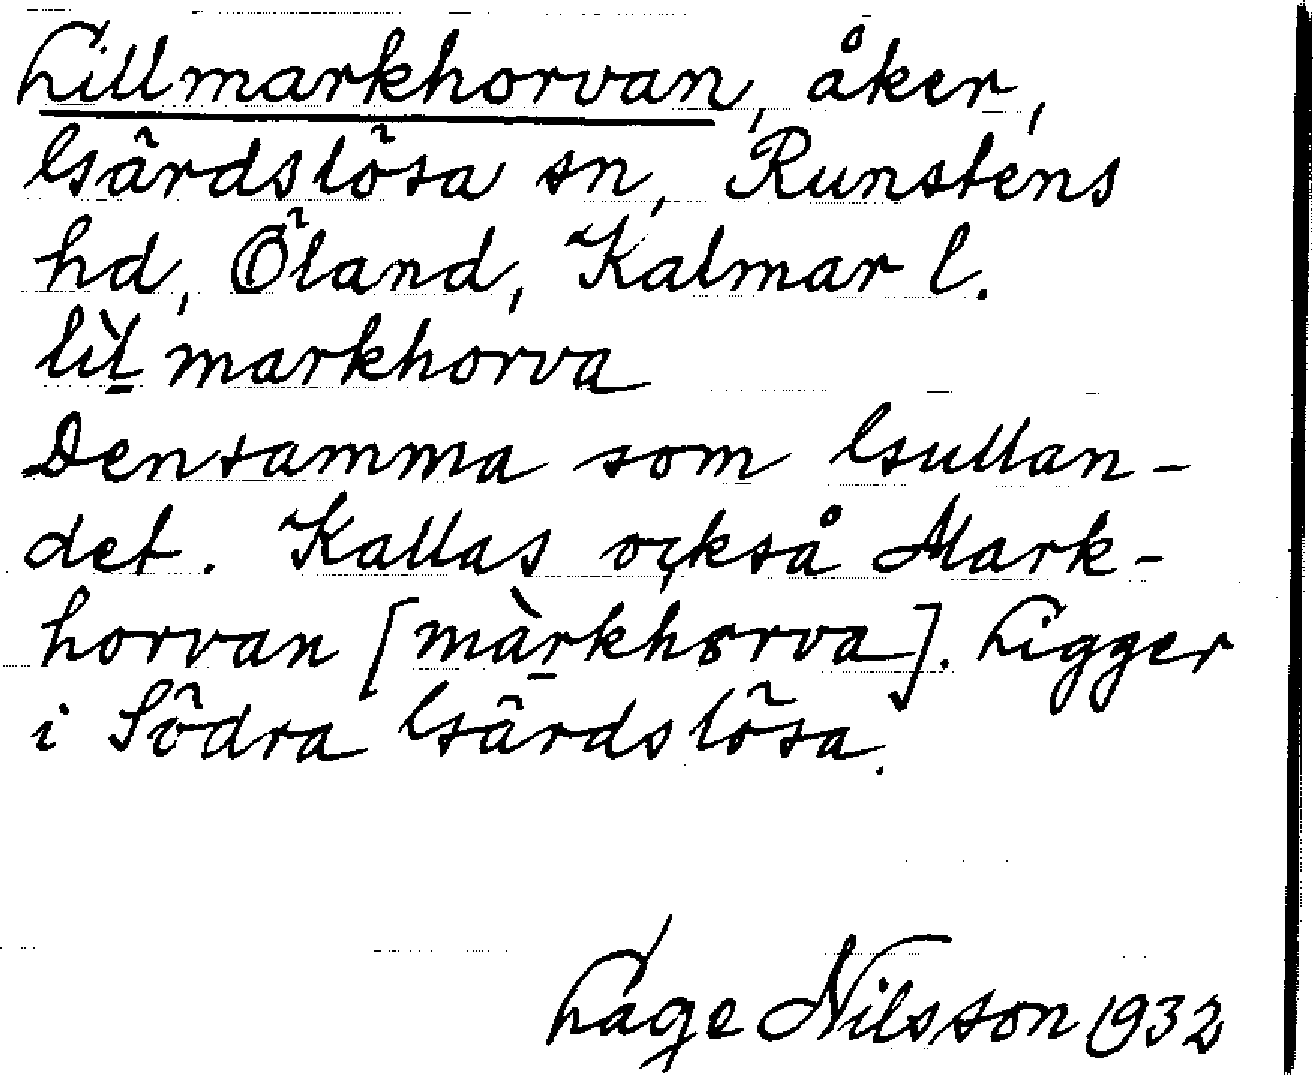 Lillmarkhorvan, åker,
Gärdslösa sn, Runstens
hd, Öland, Kalmar l.
lìl̠ markhorva
Densamma som Gullan-
det. Kallas också Mark-
horvan [màr̠khorva]. Ligger
i Södra Gärdslösa.
Lage Nilsson 1932